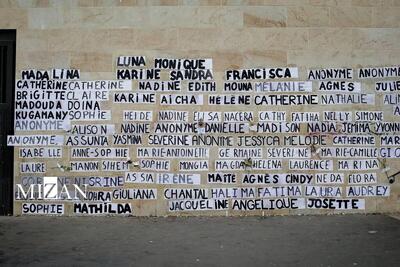 LUNA MONIQUE
MADALINA KARINE SANDRA FRANCISCA ANONYME ANONYME
CATHERINE CATHERINE NADINE EDITH MOUNA MELANIE AGNES JULIE
BRIGITTE CLAIRE KARINE AICHA HELENE CATHERINE NATHALIE
MADOUDA DOINA
KUGAMANY SOPHIE HEIDE NADINE ELISA NACERA CATHY FATIHA NELLY SIMONE
ANONYME ALISON NADINE ANONYME DANIELLE MADISON NADIA JEMIMA YVONNE
ANONYME ASSUNTA YASMINA SEVERINE ANONYME JESSYCA MELODIE CATHERINE
ISABELLE ANNE-SOPHIE MARIE-ANTOINETTE GERMAINE SEVERINE MARIE-CAMILLE
LAURE MANON SOPHIE MONICA MAGDA HELENA LAURENCE MARINA
NISRINE ASSIA IRENE MAITE AGNES CINDY NEDA FLORA
MIZAN
GIULIANA CHANTAL HALIMA FATIMA LAURA AUDREY
SOPHIE MATHILDA JACQUELINE ANGELIQUE JOSETTE